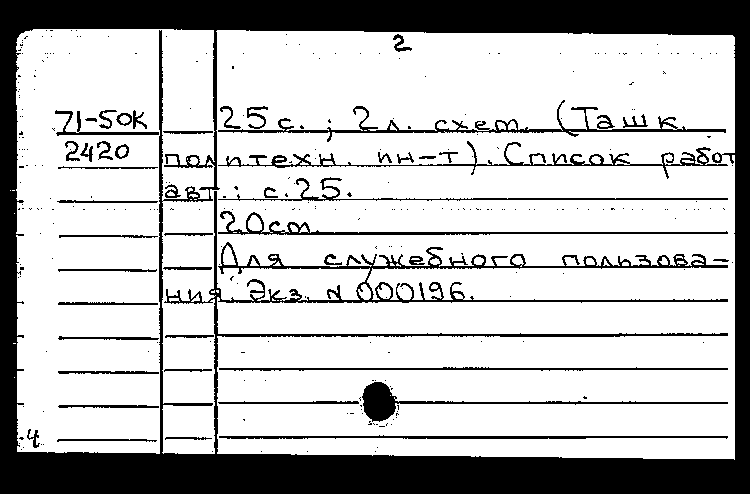 2
71-50К 25с. ; 2л. схем. (Ташк.
2420 политехн. ин-т). Список работ
авт.: с.25.
20см.
Для служебного пользова-
ния. Экз. N 000196.
4